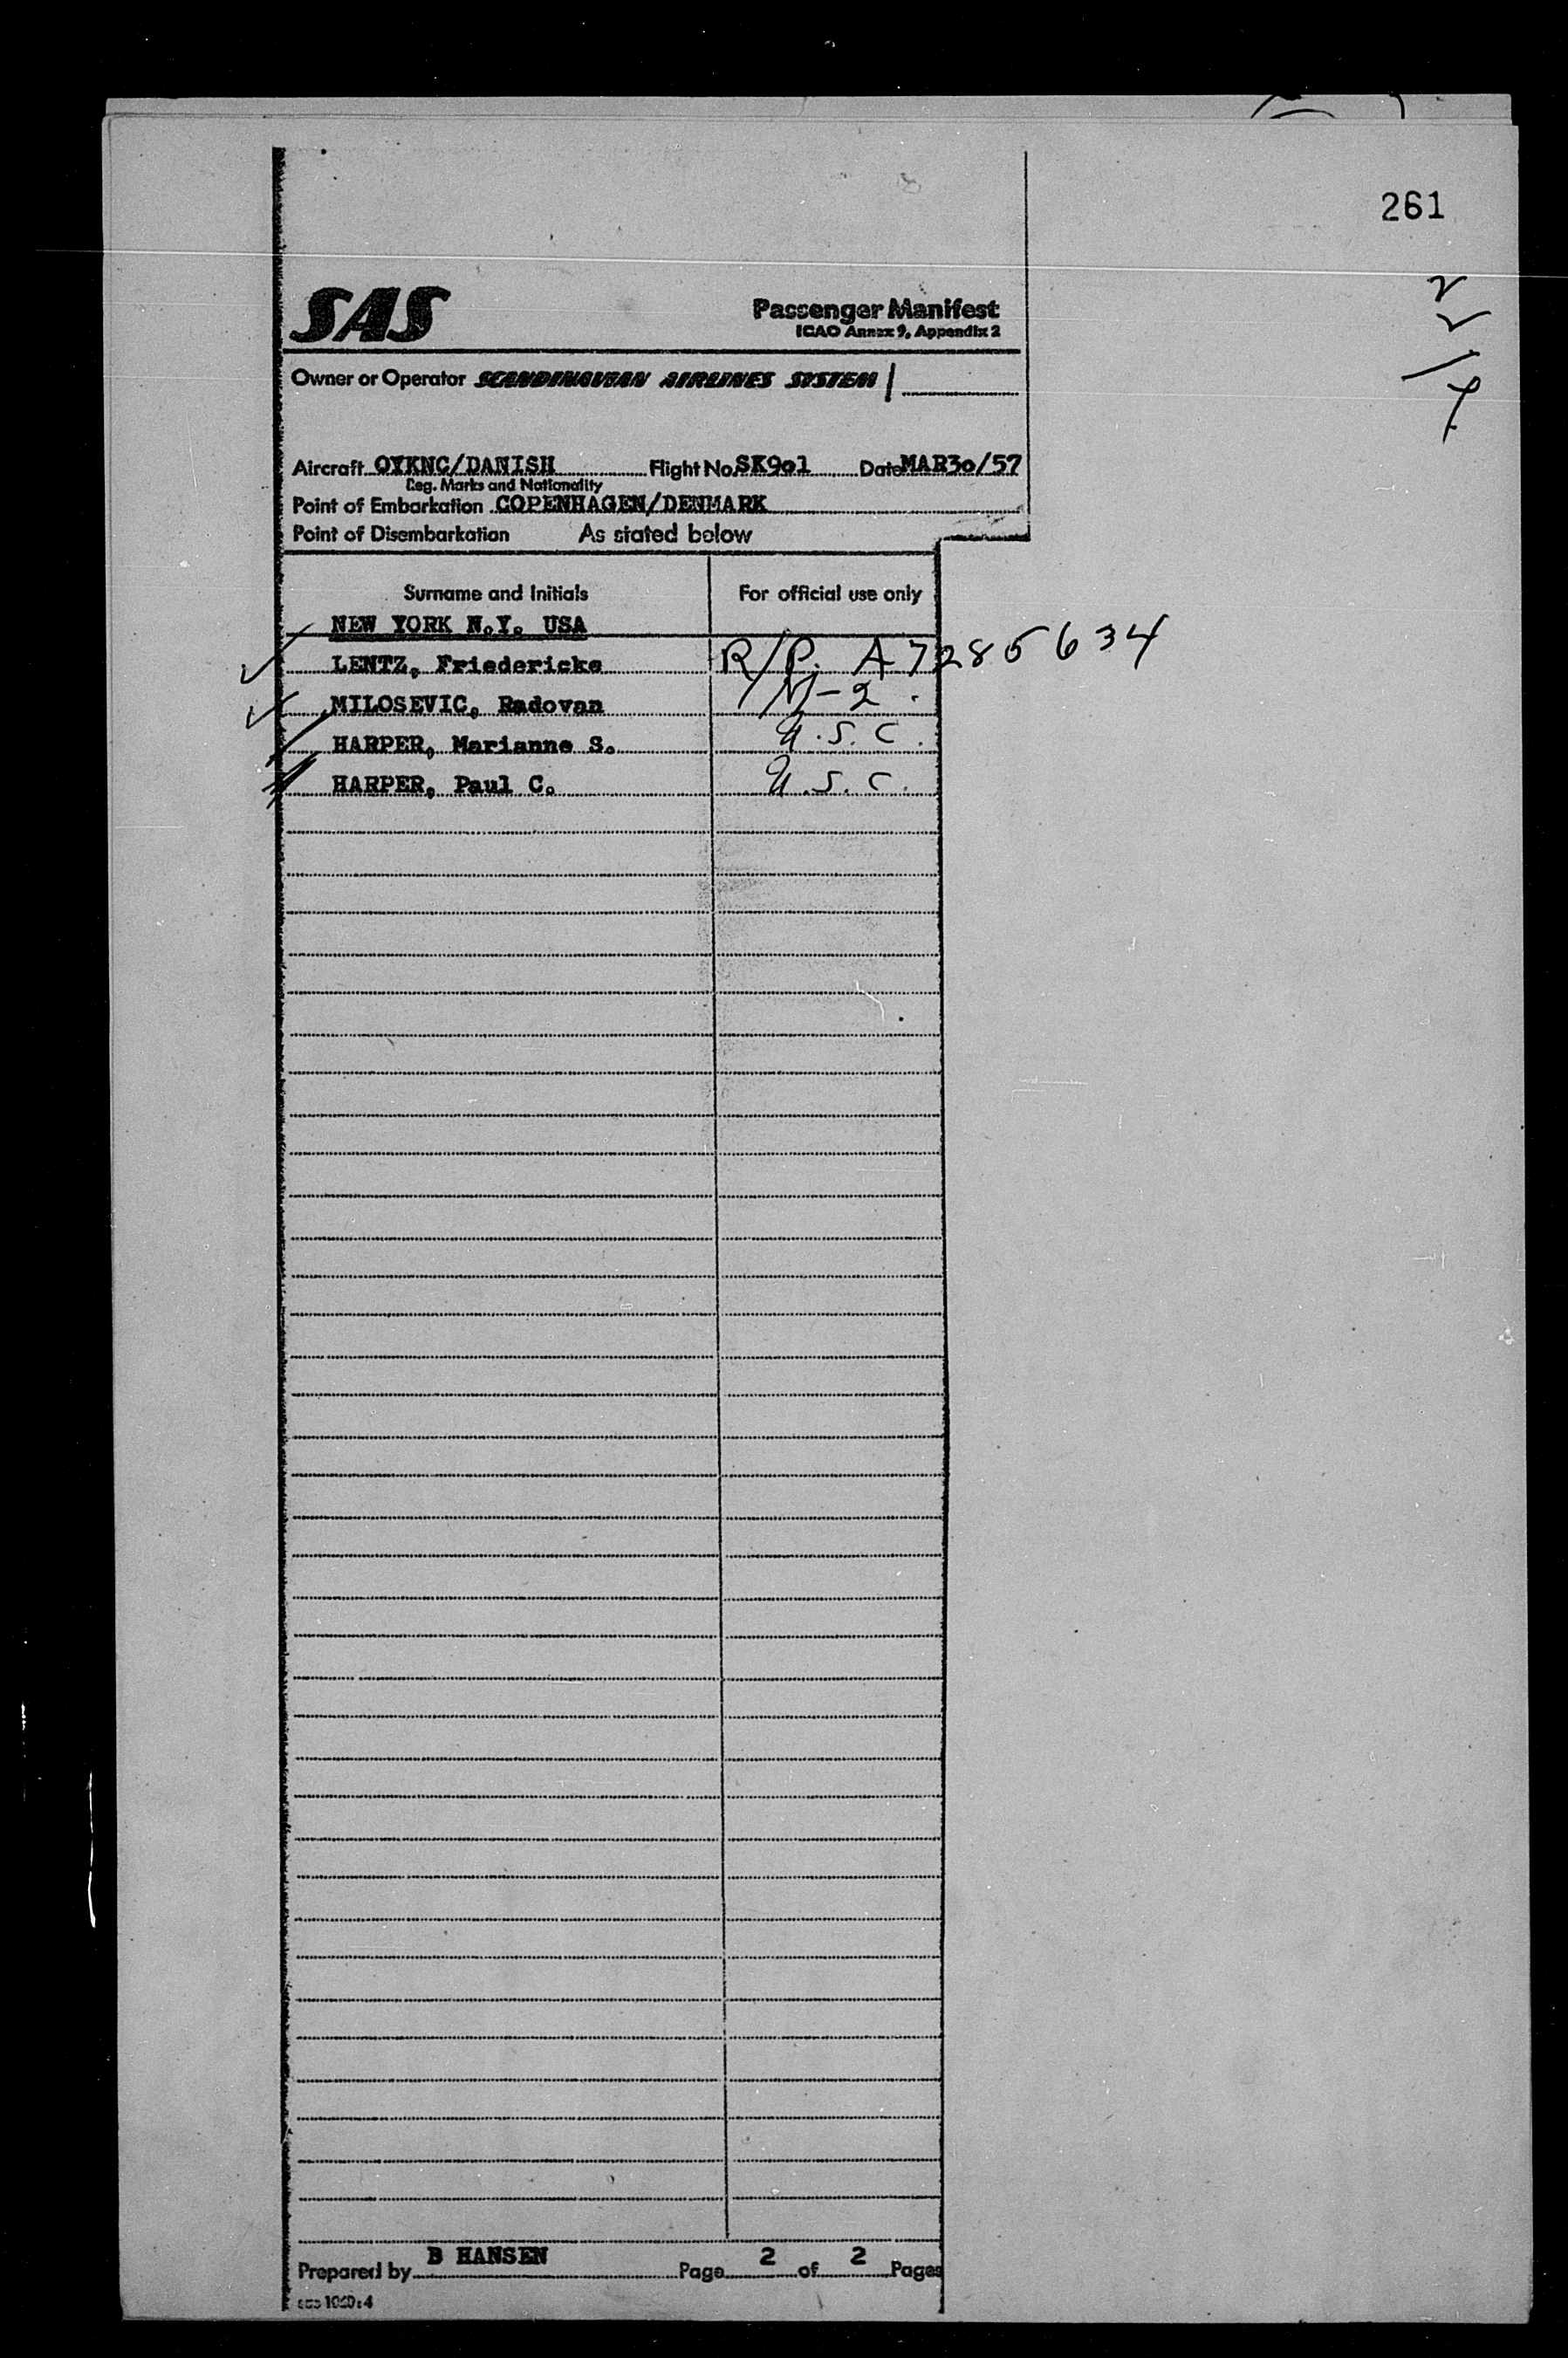 261
SAS
Passenger Manifest
ICAO Annex 9, Appendix 2
Owner or Operator SCANDINAVIAN AIRLINES SYSTEM
Aircraft OYKNC/DANISH Flight No. SK901 Date MAR30/57
Reg. Marks and Nationality
Point of Embarkation COPENHAGEN/DENMARK
Point of Disembarkation As stated below
Surname and Initials For official use only
NEW YORK N.Y. USA
LENTZ, Friedericke R/P. A7285634
MILOSEVIC, Radovan
HARPER, Marianne S. U.S.C.
HARPER, Paul C. U.S.C.
Prepared by B HANSEN Page 2 of 2 Pages